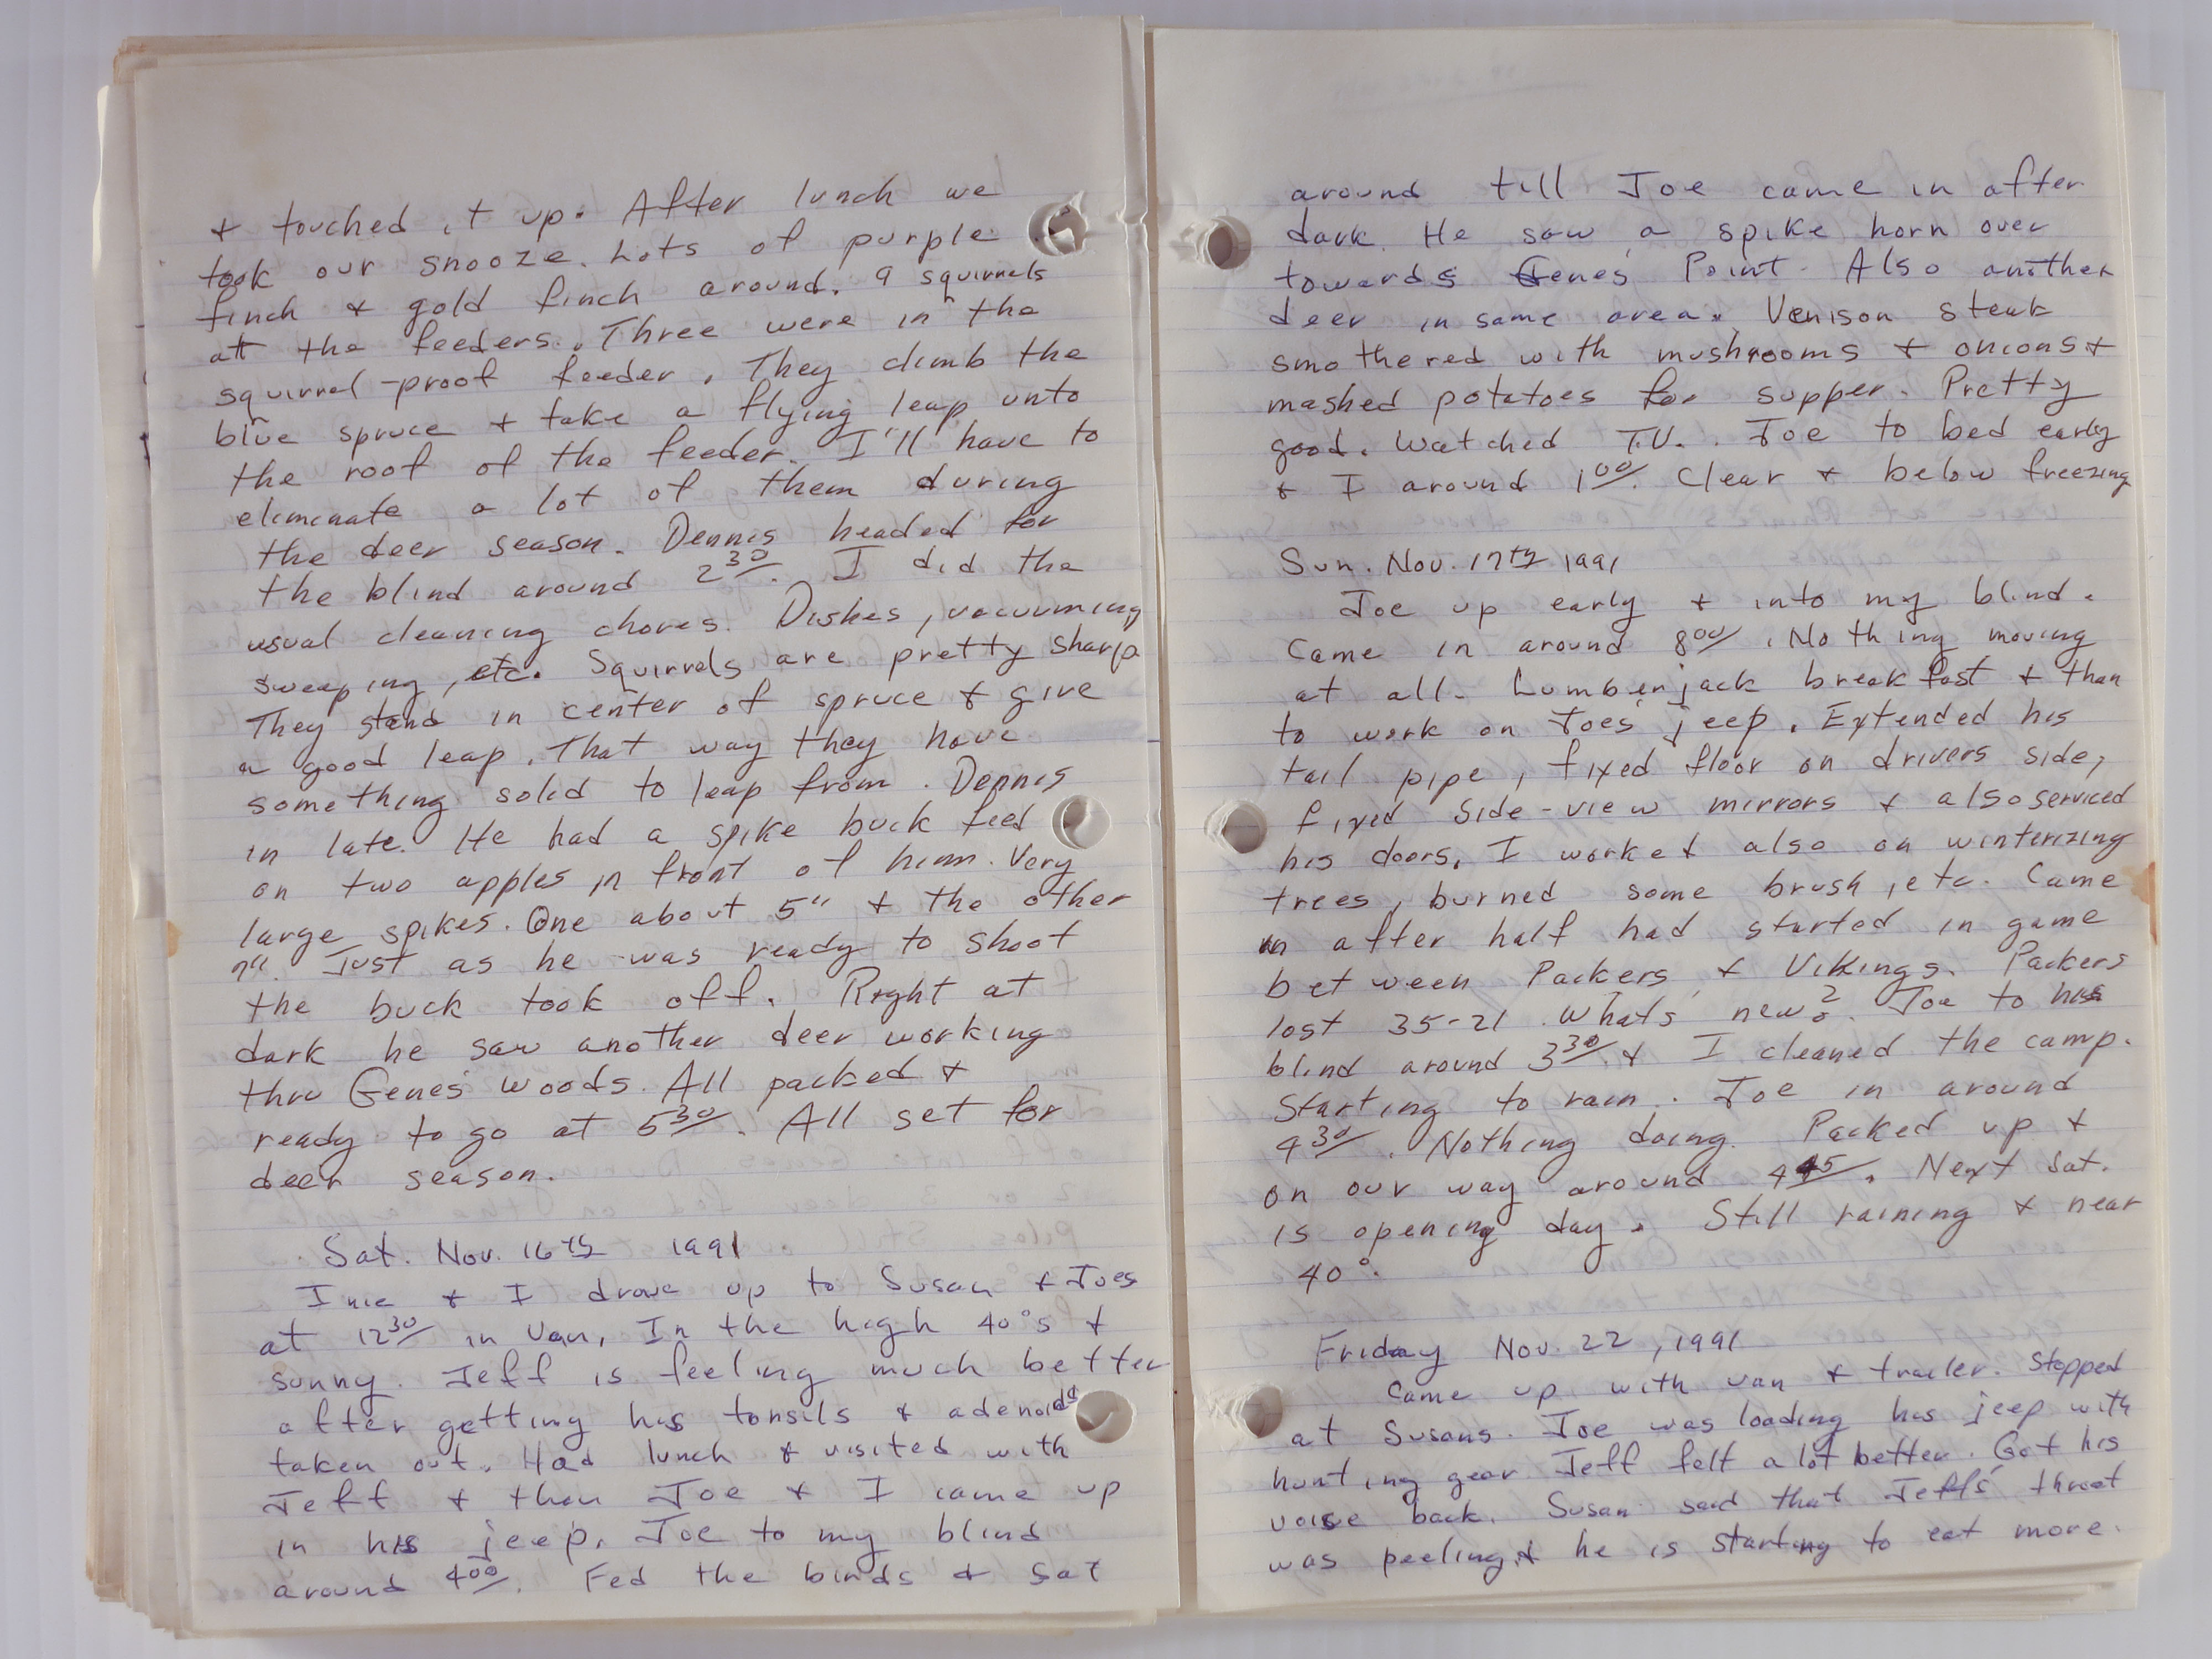 + touched it up. After lunch we
took our snooze. Lots of purple
finch + gold finch around. 9 squirrels
at the feeders. Three were in the
squirrel-proof feeder. They climb the
blue spruce + take a flying leap unto
the roof of the feeder. I'll have to
eliminate a lot of them during
the deer season. Dennis headed for
the blind around 2³⁰. I did the
usual cleaning chores. Dishes, vacuuming,
sweeping, etc. Squirrels are pretty sharp
They stand in center of spruce + give
a good leap. That way they have
something solid to leap from. Dennis
in late. He had a spike buck feed
on two apples in front of him. Very
large spikes. One about 5" + the other
7". Just as he was ready to shoot
the buck took off. Right at
dark he saw another deer working
thru Genes' woods. All packed +
ready to go at 5³⁰. All set for
deer season.
Sat. Nov. 16th 1991
Inie + I drove up to Susan + Joes
at 12³⁰ in van. In the high 40°s +
sunny. Jeff is feeling much better
after getting his tonsils + adenoids
taken out. Had lunch + visited with
Jeff + then Joe + I came up
in his jeep. Joe to my blind
around 4⁰⁰. Fed the birds + sat
around till Joe came in after
dark. He saw a spike horn over
towards Genes' Point. Also another
deer in same area. Venison steak
smothered with mushrooms + onions +
mashed potatoes for supper. Pretty
good. Watched T.V. Joe to bed early
+ I around 1⁰⁰. Clear + below freezing
Sun. Nov. 17th 1991
Joe up early + into my blind.
Came in around 8⁰⁰. Nothing moving
at all. Lumberjack breakfast + than
to work on Joes' jeep. Extended his
tail pipe, fixed floor on drivers side,
fixed side-view mirrors + also serviced
his doors. I worked also on winterizing
trees, burned some brush, etc. Came
in after half had started in game
between Packers + Vikings. Packers
lost 35-21. Whats' new? Joe to his
blind around 3³⁰ + I cleaned the camp.
Starting to rain. Joe in around
4³⁰. Nothing doing. Packed up +
on our way around 4⁴⁵. Next Sat.
is opening day. Still raining + near
40°.
Friday Nov. 22, 1991
Came up with van + trailer. Stopped
at Susans. Joe was loading his jeep with
hunting gear. Jeff felt a lot better. Got his
voise back. Susan said that Jeffs' throat
was peeling + he is starting to eat more.